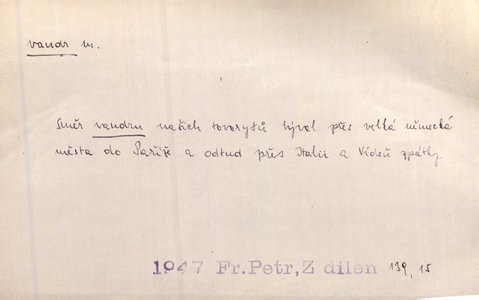 vandr m.
Směr vandru našich tovaryšů býval přes velká německá
města do Paříže a odtud přes Italii a Vídeň zpátky.
1947 Fr.Petr, Z dílen 139, 15